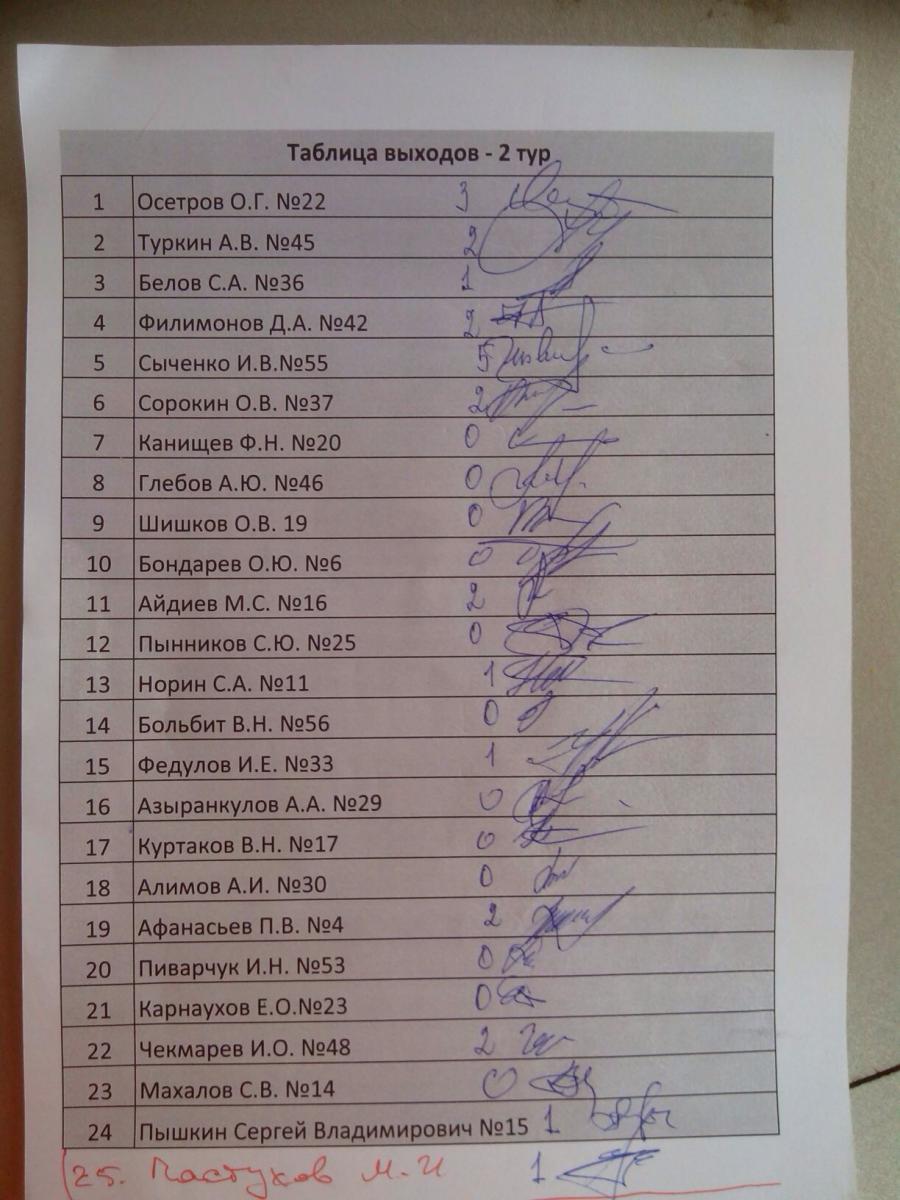 Таблица выходов - 2 тур
1 Осетров О.Г. №22 3
2 Туркин А.В. №45 2
3 Белов С.А. №36 1
4 Филимонов Д.А. №42 2
5 Сыченко И.В.№55 5
6 Сорокин О.В. №37 2
7 Канищев Ф.Н. №20 0
8 Глебов А.Ю. №46 0
9 Шишков О.В. 19 0
10 Бондарев О.Ю. №6 0
11 Айдиев М.С. №16 2
12 Пынников С.Ю. №25 0
13 Норин С.А. №11 1
14 Больбит В.Н. №56 0
15 Федулов И.Е. №33 1
16 Азыранкулов А.А. №29 0
17 Куртаков В.Н. №17 0
18 Алимов А.И. №30 0
19 Афанасьев П.В. №4 2
20 Пиварчук И.Н. №53 0
21 Карнаухов Е.О.№23 0
22 Чекмарев И.О. №48 2
23 Махалов С.В. №14 0
24 Пышкин Сергей Владимирович №15 1
25. Пастухов М.И 1